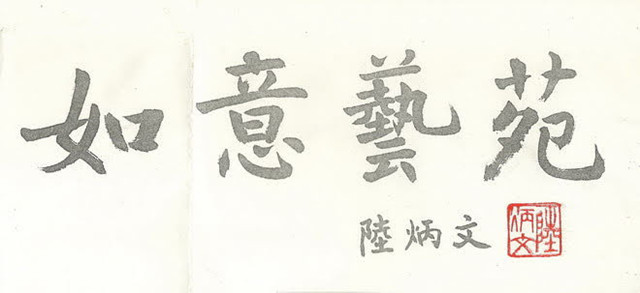 如意藝苑
陸炳文
陸炳文